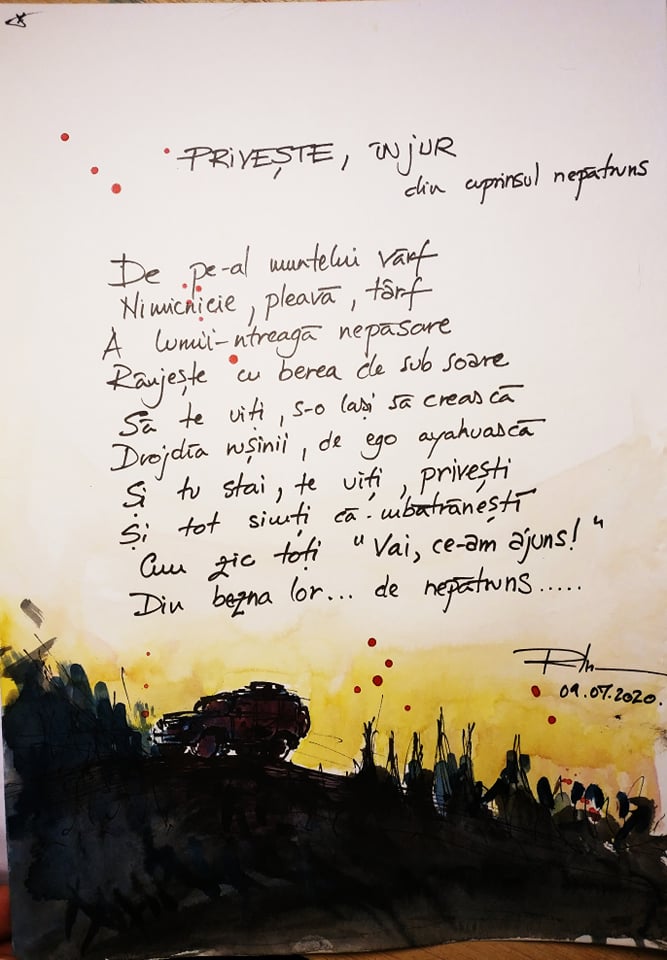 PRIVEȘTE, ÎN JUR
din cuprinsul nepătruns
De pe-al muntelui vârf
Nimicnicie, pleavă, târf
A lumii-ntreagă nepăsare
Rânjește cu berea de sub soare
Să te uiți, s-o lași să crească
Drojdia rușinii, de ego ayahuască
Și tu stai, te uiți, privești
Și tot simți că-mbătrânești
Cum zic toți "Vai, ce-am ajuns!"
Din bezna lor... de nepătruns.....
09.07.2020.